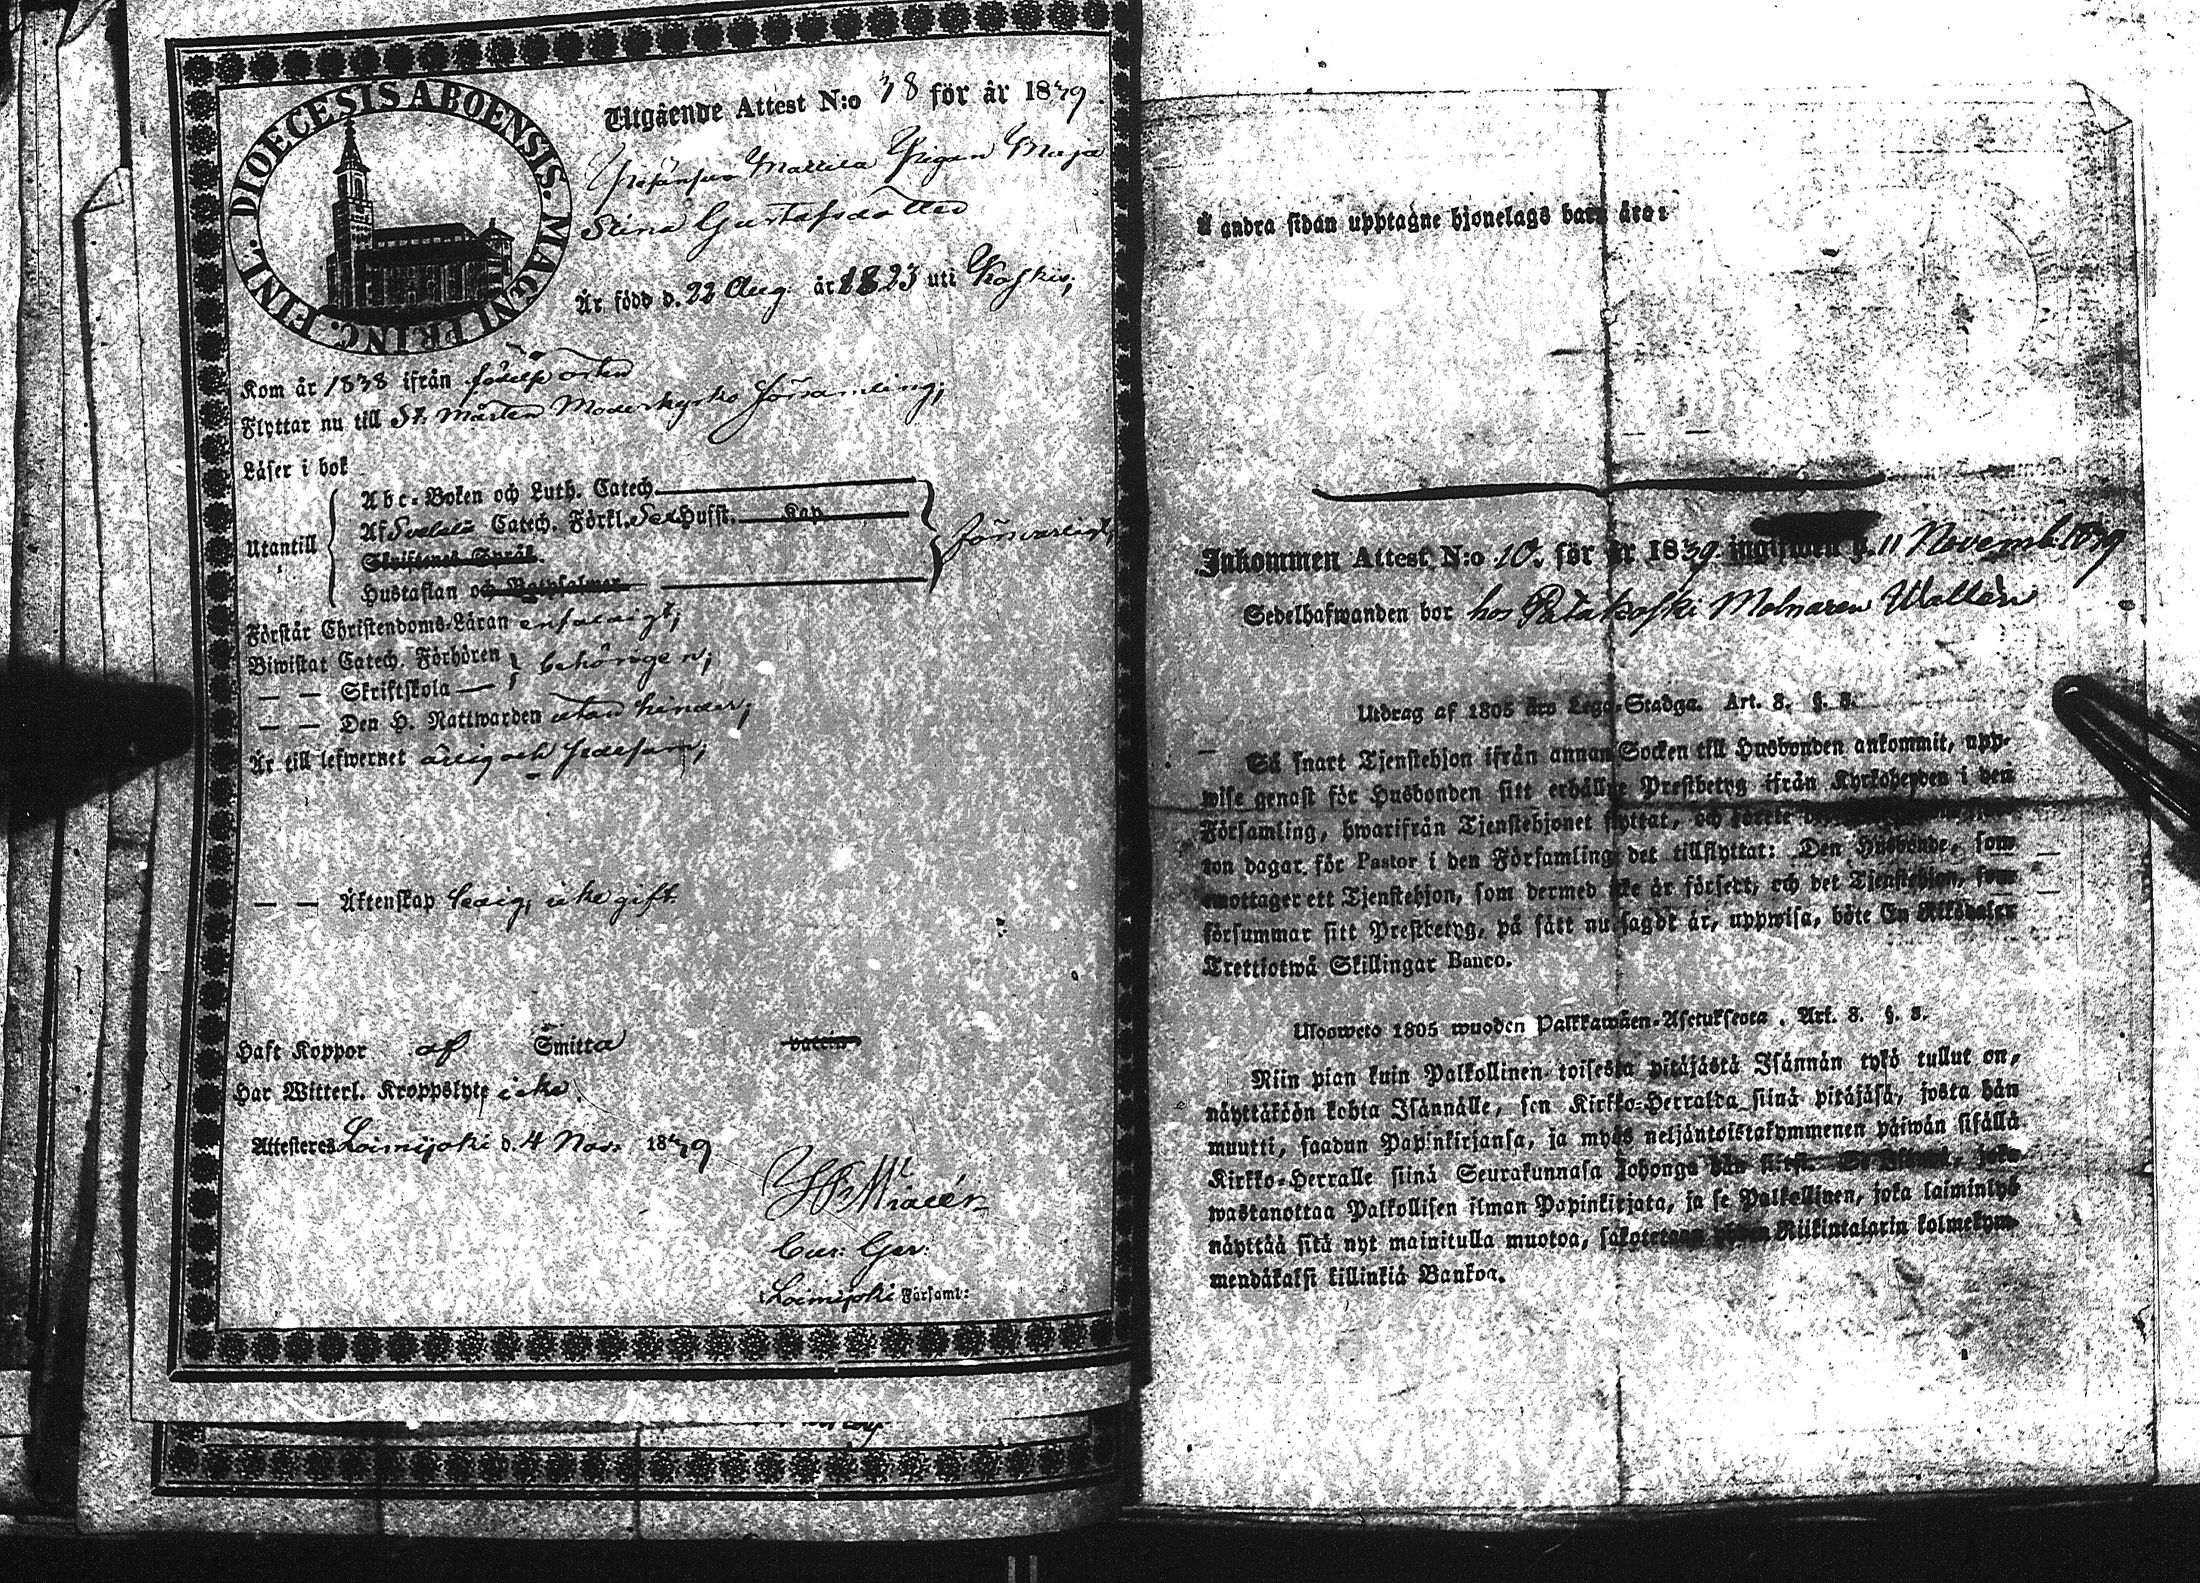 DIOECESIS ABOENSIS. MAGNI PRINC. FINL.
Utgående Attest N:o 38 för år 1839.
Mattila Pigan Maja
Stina Gustafsdotter
Är född d. 22 Aug. år 1823 uti Koskis,
Kom år 1838 ifrån födelse orten
Flyttar nu till St. Mårten Moderkyrko församling,
Läser i bok
Utantill
Abc-Boken och Luth. Catech.
Af Svebelii Catech. Förkl. Hufst. Kap
Skriftenes Språk.
Hustaflan och Botpsalmer
försvarligt,
Förstår Christendoms-Läran enfaldigt;
Biwistat Catech. Förhören behörigen;
— — Skriftskola —
— — Den H. Nattwarden utan hinder;
Är till lefwernet ärlig och sedesam;
— — Äktenskap ledig, icke gift.
Haft Koppor af Smitta vaccin
Har Witterl. Kroppslyte icke.
Attesteras Loimijoki d. 4 Nov. 1839
Cur: Ger:
i Loimijoki Församl:
Å andra sidan upptagne hjonelags barn äro:
Inkommen Attest N:o 10. för år 1839. ingifwen d. 11 Novemb. 1839
Sedelhafwanden bor hos Patakoski Molnaren Wallén
Utdrag af 1805 års Lego-Stadga. Art. 8. §. 8.
— Så snart Tjenstehjon ifrån annan Socken till Husbonden ankommit, upp-
wise genast för Husbonden sitt erhållne Prestbetyg ifrån Kyrkoherden i den
Församling, hwarifrån Tjenstehjonet flyttat, och förete
ton dagar för Pastor i den Församling det tillflyttat: Den Husbonde, som
emottager ett Tjenstehjon, som dermed icke är försedt, och det Tjenstehjon, som
försummar sitt Prestbetyg, på sätt nu sagdt är, uppwisa, böte En Riksdaler
Trettiotwå Skillingar Banco.
Ulosweto 1805 wuoden Palkkawäen-Asetuksesta. Art. 8. §. 8.
Niin pian kuin Palkollinen toisesta pitäjästä Isännän tykö tullut on,
näyttäköön kohta Isännälle, sen Kirkko-Herralda siinä pitäjäsä, josta hän
muutti, saadun Papinkirjansa, ja myös neljäntoistakymmenen päiwän sisällä
Kirkko-Herralle siinä Seurakunnasa johonga hän siirsi. Se Isäntä, joka
wastanottaa Palkollisen ilman Papinkirjata, ja se Palkollinen, joka laiminlyö
näyttää sitä nyt mainitulla muotoa, sakotetaan yhden Riikintalarin kolmekym-
mendäkaksi killinkiä Bankoa.